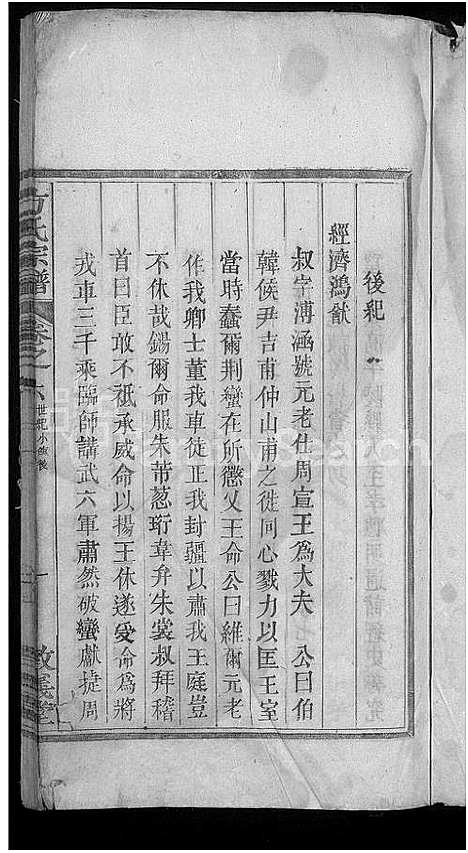 後紀
經濟鴻猷
叔字溥涵號元老仕周宣王爲大夫 公曰伯
韓侯尹吉甫仲山甫之徙同心戮力以匡王室
當時蠢爾荆蠻在所懲乂王命公曰維爾元老
作我卿士董我車徒正我封疆以肅我王庭豈
不休哉錫爾命服朱芾葱珩韋弁朱裳叔拜稽
首曰臣敢不祇承威命以揚王休遂受命爲將
戎車三千乘臨師講武六軍肅然破蠻獻捷周
方氏宗譜 卷之六 世紀小傳後 一